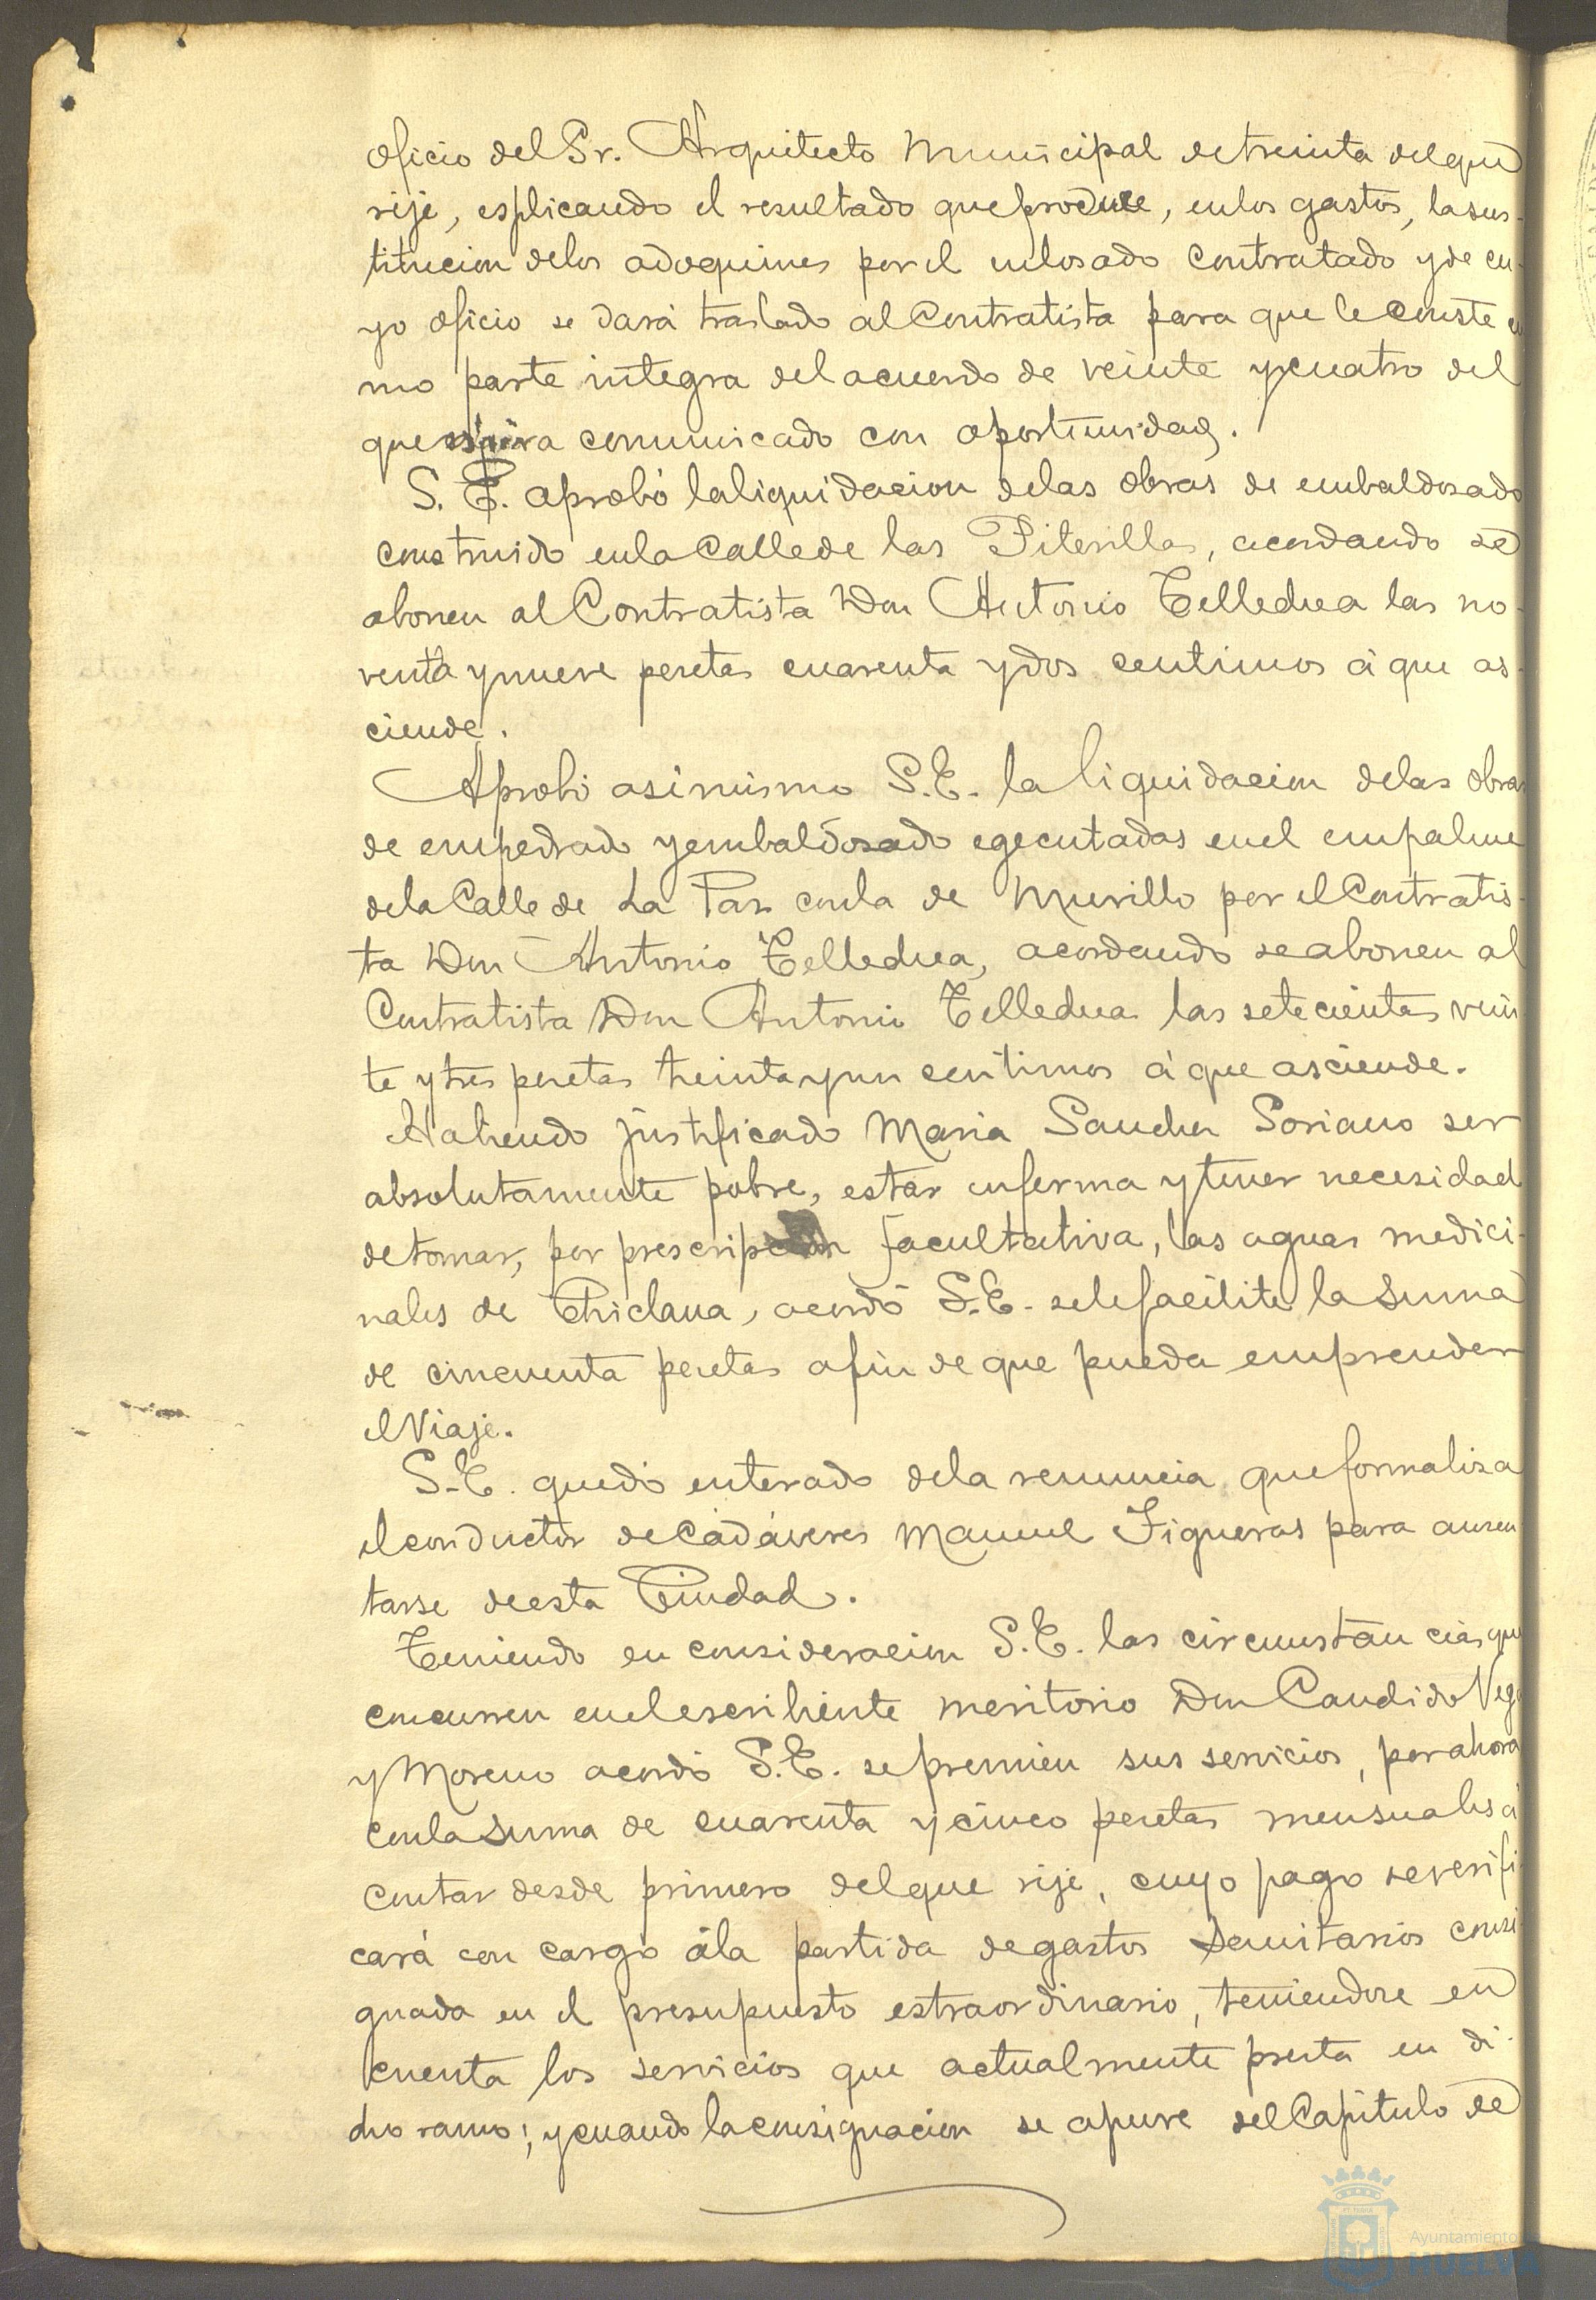 oficio del Sr. Arquitecto Municipal de treinta del que
rije, esplicando el resultado que produce, en los gastos, la sus-
titucion de los adoquines por el enlosado contratado y de cu-
yo oficio se dará traslado al Contratista para que le conste co
mo parte integra del acuerdo de veinte y cuatro del
que espira comunicado con oportunidad.
S. E. aprobó la liquidacion de las obras de embaldosado
construido en la Calle de las Piterillas, acordando se
abonen al Contratista Don Antonio Telledua las no-
venta y nueve pesetas cuarenta y dos centimos á que as-
ciende.
Aprobó asimismo S.E. la liquidacion de las obras
de empedrado y embaldosado egecutadas en el empalme
de la Calle de La Paz con la de Murillo por el Contratis-
ta Don Antonio Telledua, acordando se abonen al
Contratista Don Antonio Telledua las setecientas vein
te y tres pesetas treinta y un centimos á que asciende.
Habiendo justificado Maria Sanchez Soriano ser
absolutamente pobre, estar enferma y tener necesidad
de tomar, por prescripcion facultativa, las aguas medici-
nales de Chiclana, acordó S.E. se le facilite la suma
de cincuenta pesetas a fin de que pueda emprender
el Viaje.
S.E. quedó enterado de la renuncia que formaliza
el conductor de Cadáveres Manuel Figueras para ausen
tarse de esta Ciudad.
Teniendo en consideracion S.E. las circunstancias que
concurren en el escribiente meritorio Don Candido Vega
y Moreno acordó S.E. se premien sus servicios, por ahora
con la suma de cuarenta y cinco pesetas mensuales á
contar desde primero del que rije, cuyo pago se verifi
cará con cargo á la partida de gastos Sanitarios consi
gnada en el presupuesto estraordinario, teniendose en
cuenta los servicios que actualmente presta en di-
cho ramo; y cuando la consignacion se apure del Capítulo de
Ayuntamiento de
HUELVA